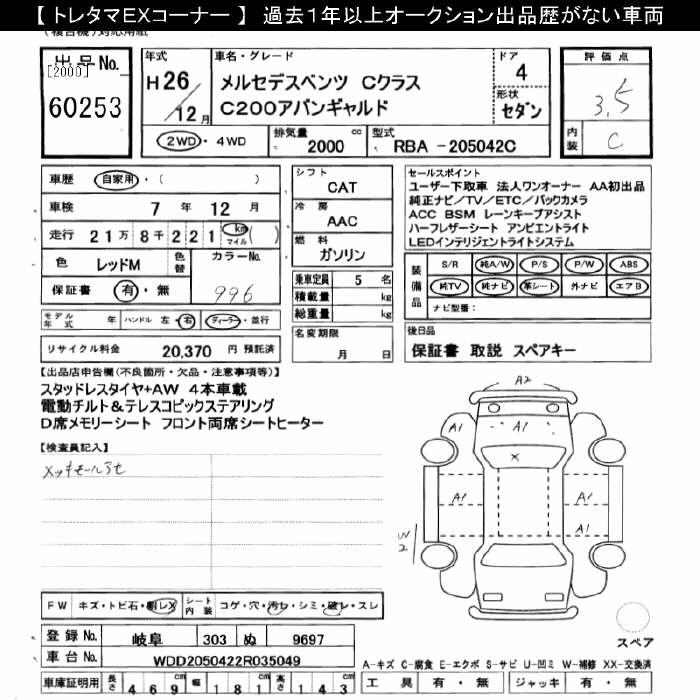 【 トレタマEXコーナー 】 過去1年以上オークション出品歴がない車両
出品No.
[2000]
60253
年式
H 26
12 月
車名・グレード
メルセデスベンツ Cクラス
C200アバンギャルド
ドア
4
形状
セダン
評価点
3.5
内装
C
2WD・4WD
排気量 2000 cc
型式 RBA - 205042C
車歴 自家用・( )
車検 7 年 12 月
走行 21万8千221 km マイル ( )
色 レッドM 色替 カラーNo. 996
保証書 有・無
モデル年式 年 ハンドル 左・右 ディーラー・並行
リサイクル料金 20,370 円 預託済
シフト CAT
冷房 AAC
燃料 ガソリン
乗車定員 5 名
積載量 kg
総重量 kg
名変期限
月 日
セールスポイント
ユーザー下取車 法人ワンオーナー AA初出品
純正ナビ/TV/ETC/バックカメラ
ACC BSM レーンキープアシスト
ハーフレザーシート アンビエントライト
LEDインテリジェントライトシステム
装備品
S/R 純A/W P/S P/W ABS
純TV 純ナビ 革シート 外ナビ エアB
ナビ型番:
後日品
保証書 取説 スペアキー
【出品店申告欄(不良箇所・欠品・注意事項等)】
スタッドレスタイヤ+AW 4本車載
電動チルト&テレスコピックステアリング
D席メモリーシート フロント両席シートヒーター
【検査員記入】
A2
A1
A1
A1
X
A1
A1
A1
W2
スペア
FW キズ・トビ石・割レX
シート内装 コゲ・穴・汚レ・シミ・破レ・スレ
登録No. 岐阜 303 ぬ 9697
車台No. WDD2050422R035049
車庫証明用 長さ 469 cm 幅 181 cm 高さ 143 cm
A-キズ C-腐食 E-エクボ S-サビ U-凹ミ W-補修 XX-交換済
工具 有・無 ジャッキ 有・無